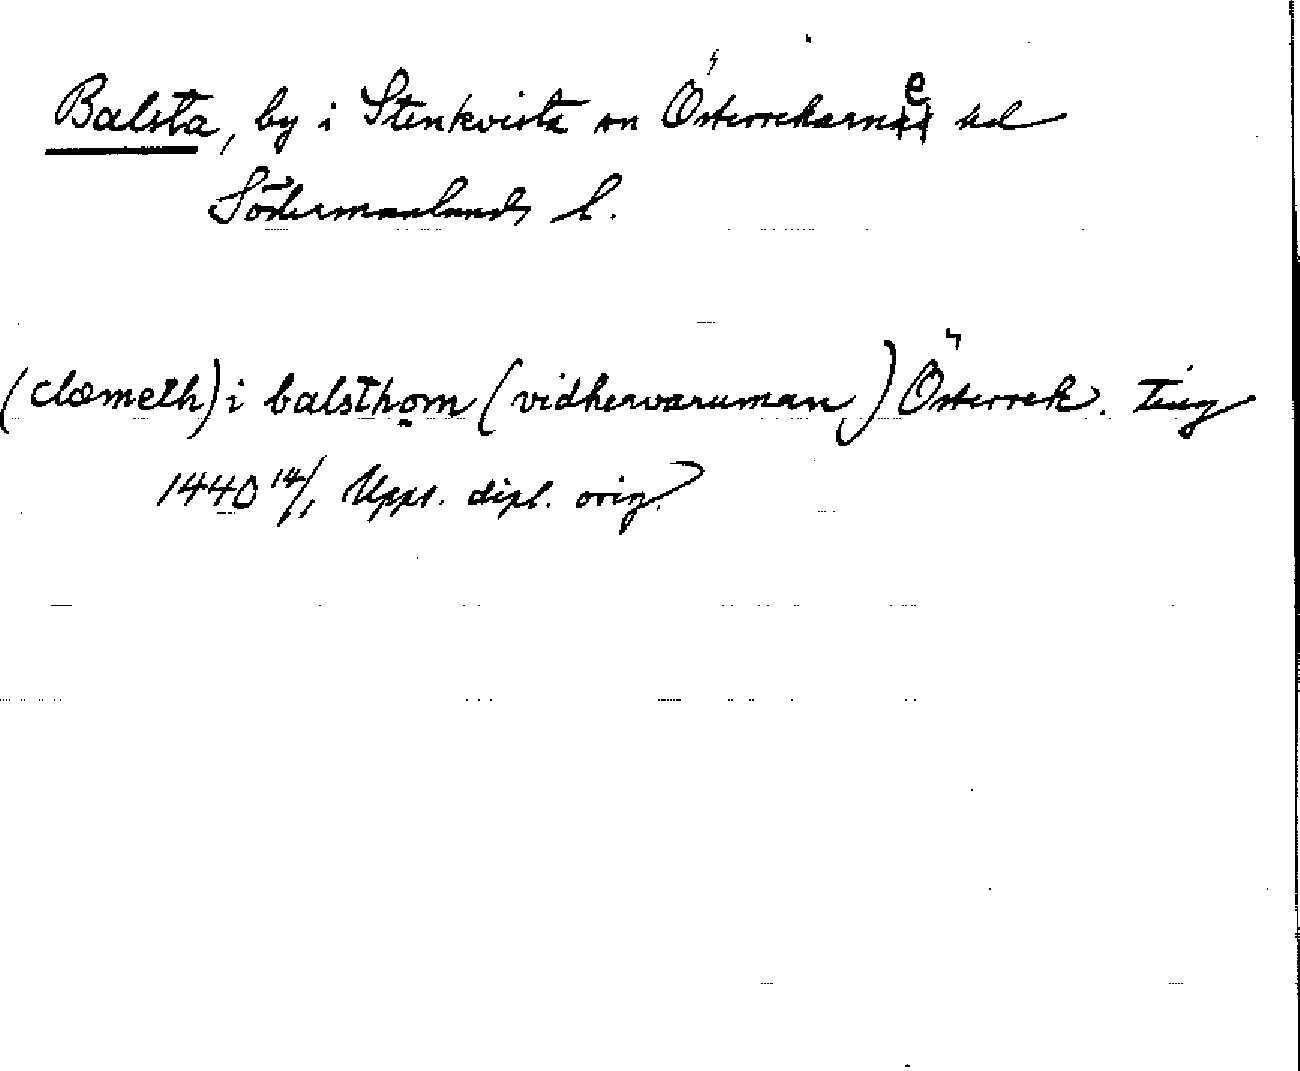 Balsta, by i Stenkvista sn Österrekarne hd
Södermanlands l.
(clæmeth) i balsthom (vidhervaruman) Österrek. Ting
1440 14/1 Uppl. dipl. orig.